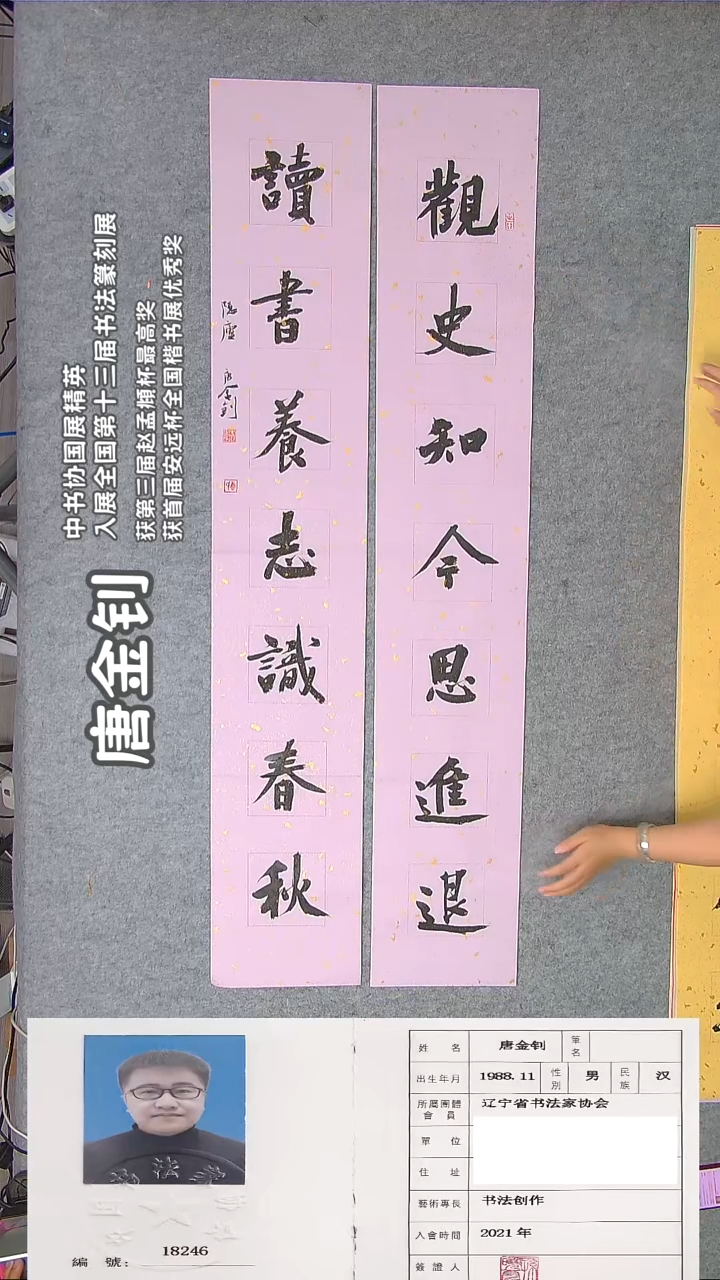 觀史知今思進退
讀書養志識春秋
隐廬 唐金钊
中书协国展精英
入展全国第十三届书法篆刻展
获第三届赵孟頫杯最高奖
获首届安远杯全国楷书展优秀奖
唐金钊
編 號: 18246
姓 名 唐金钊 筆名
出生年月 1988.11 性別 男 民族 汉
所屬團體會員 辽宁省书法家协会
單 位
住 址
藝術專長 书法创作
入會時間 2021 年
簽證人